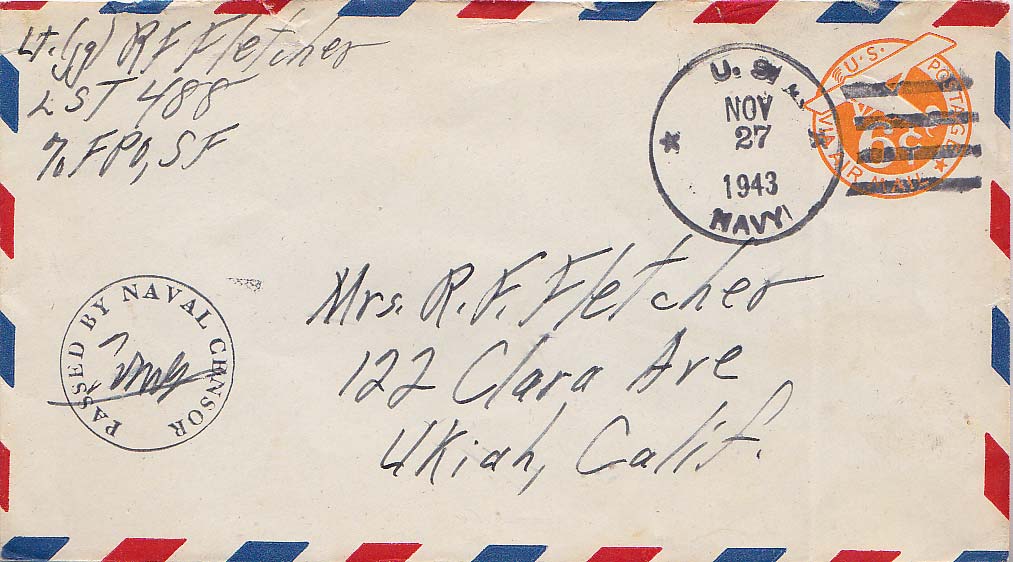 Lt. (jg) R F Fletcher
LST 488
% FPO, SF
U. S.
NOV
27
1943
NAVY
U.S. POSTAGE
6¢
VIA AIR MAIL
PASSED BY NAVAL CENSOR
Mrs. R. F. Fletcher
122 Clara Ave
Ukiah, Calif.